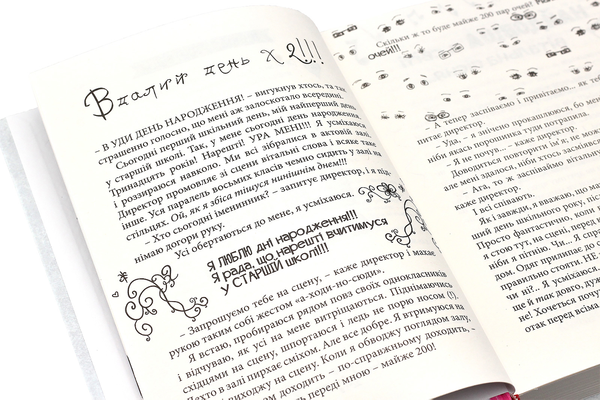 Вдалий день х 2!!!
– В УДИ ДЕНЬ НАРОДЖЕННЯ! – вигукнув хтось, та так
страшенно голосно, що мені аж залоскотало всередині.
Сьогодні перший шкільний день, мій найперший день
у старшій школі. Так, у мене сьогодні день народження.
Тринадцять років! Нарешті! УРА МЕНІ!!! Я усміхаюся
і роззираюся навколо. Ми всі зібралися в актовій залі.
Директор промовляє зі сцени вітальні слова і всяке таке
інше. Уся паралель восьмих класів чемно сидить у залі на
стільцях. Ой, як я збіса тішуся нинішнім днем!!!
– Хто сьогодні іменинник? – запитує директор, і я під-
німаю догори руку.
Усі обертаються до мене, я усміхаюся.
Я ЛЮБЛЮ дні народження!!!
Я рада, що нарешті вчитимуся
у СТАРШІЙ школі!!!!
– Запрошуємо тебе на сцену, – каже директор і махає
рукою таким собі жестом «а-ходи-но-сюди».
Я встаю, пробираюся рядом повз своїх однокласників
і відчуваю, як усі на мене витріщаються. Піднімаючись
східцями на сцену, шпортаюся і ледь не порю носом (!),
Дехто в залі пирхає сміхом. Але все добре. Я втримуюся на
виходжу на сцену. Коли я обводжу поглядом залу,
доходить – по-справжньому доходить, –
переді мною – майже 200!
Скільки ж то буде майже 200 пар очей?
очей!!!
– А тепер заспіваємо і привітаємо... як те
питає директор.
– Уда, – я значено прокашлююся, бо мене
ніби якась порошинка туди потрапила.
– Я не почув... – каже директор.
Доводиться повторити ім'я, не може
але мені здалося, ніби хтось засміявся
– Ага, то ж заспіваймо вітальну
каже директор.
І всі співають.
Як і завжди, я вважаю, що ма
ший день шкільного року, піс
Просто фантастично, коли
я стою тут, на сцені, перед
ніби я пітнію. Чи... Я спра
дом. Одяг прилипає до с
правильно стояти. НЕ
чи ні?... Я усміхаюся,
ше й так довго, дуж
не! Хочеться почу
отак перед всіма